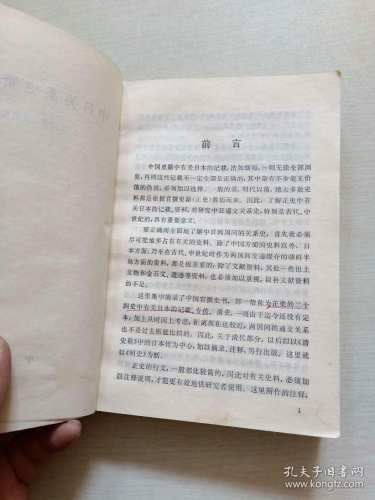 中日关系史资
前言
中国史籍中有关日本的记载,浩如烟海,一则无法全部网
罗,再则这些记载不一定全部是正确的,其中杂有不少毫无价
值的伪说,必须加以选择。一般的说,明代以前,绝大多数史
料都是根据官撰史籍(正史)敷衍而来。因此,了解正史中有
关日本的记载、资料,对研究中日通交关系史,特别是古代、中
世纪的,具有重要意义。
要正确而全面地了解中日两国间的关系史,首先就必须
尽可能地多占有有关的史料。除了中国方面的史料以外,日
本方面,乃至在古代、中世纪时作为两国间交通媒介的朝鲜半
岛方面的资料,都是很重要的。除了文献资料,其他一些出土
文物和金石文、遗迹等资料,也都必须加以重视,以补文献资料
的不足。
这里集中摘录了中国官撰史书,即一般称为正史的二十
四史中有关日本的记载、专传。清史,一则由于迄今还没有定
本,加上从时间上考虑,距离现在也较近,两国间的通交关系
也不是过去所能比拟的。因此,关于清代部分,以后拟以《清
史稿》中的日本传为中心,加以摘录、注释,另行出版。这里就
以《明史》为断。
正史的行文,一般都比较简约,因此对有关史料,必须加
以注释说明,才能更有效地供研究者使用。这里所作的注释,
1
孔夫子旧书网
www.kongfz.com